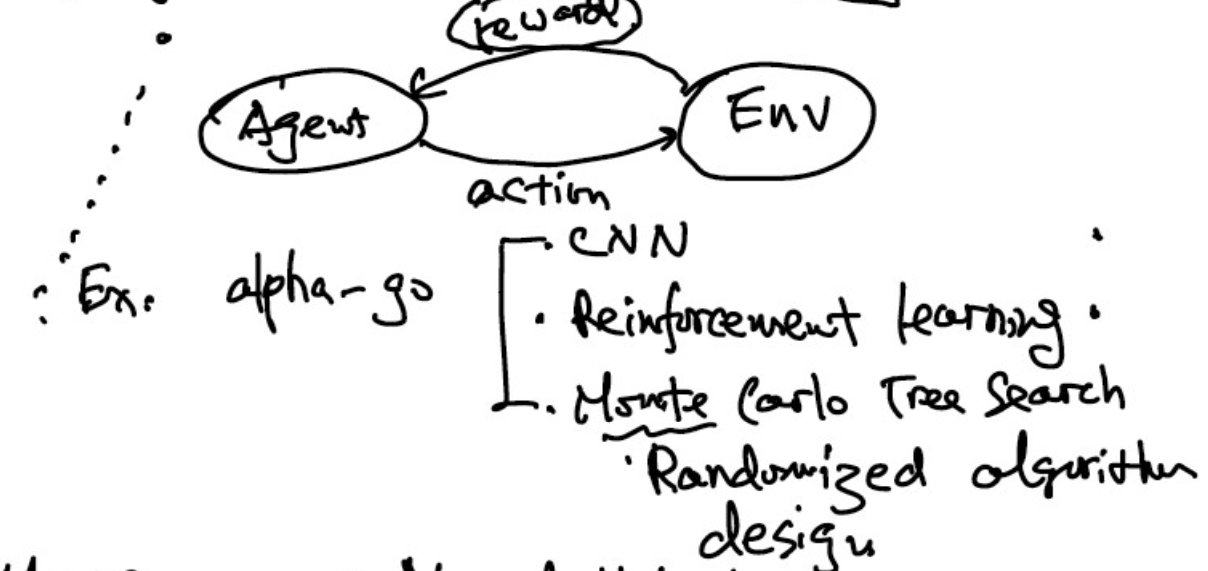 reward
Agent
Env
action
Ex. alpha-go
· CNN
· Reinforcement learning
· Monte Carlo Tree Search
· Randomized algorithm
design